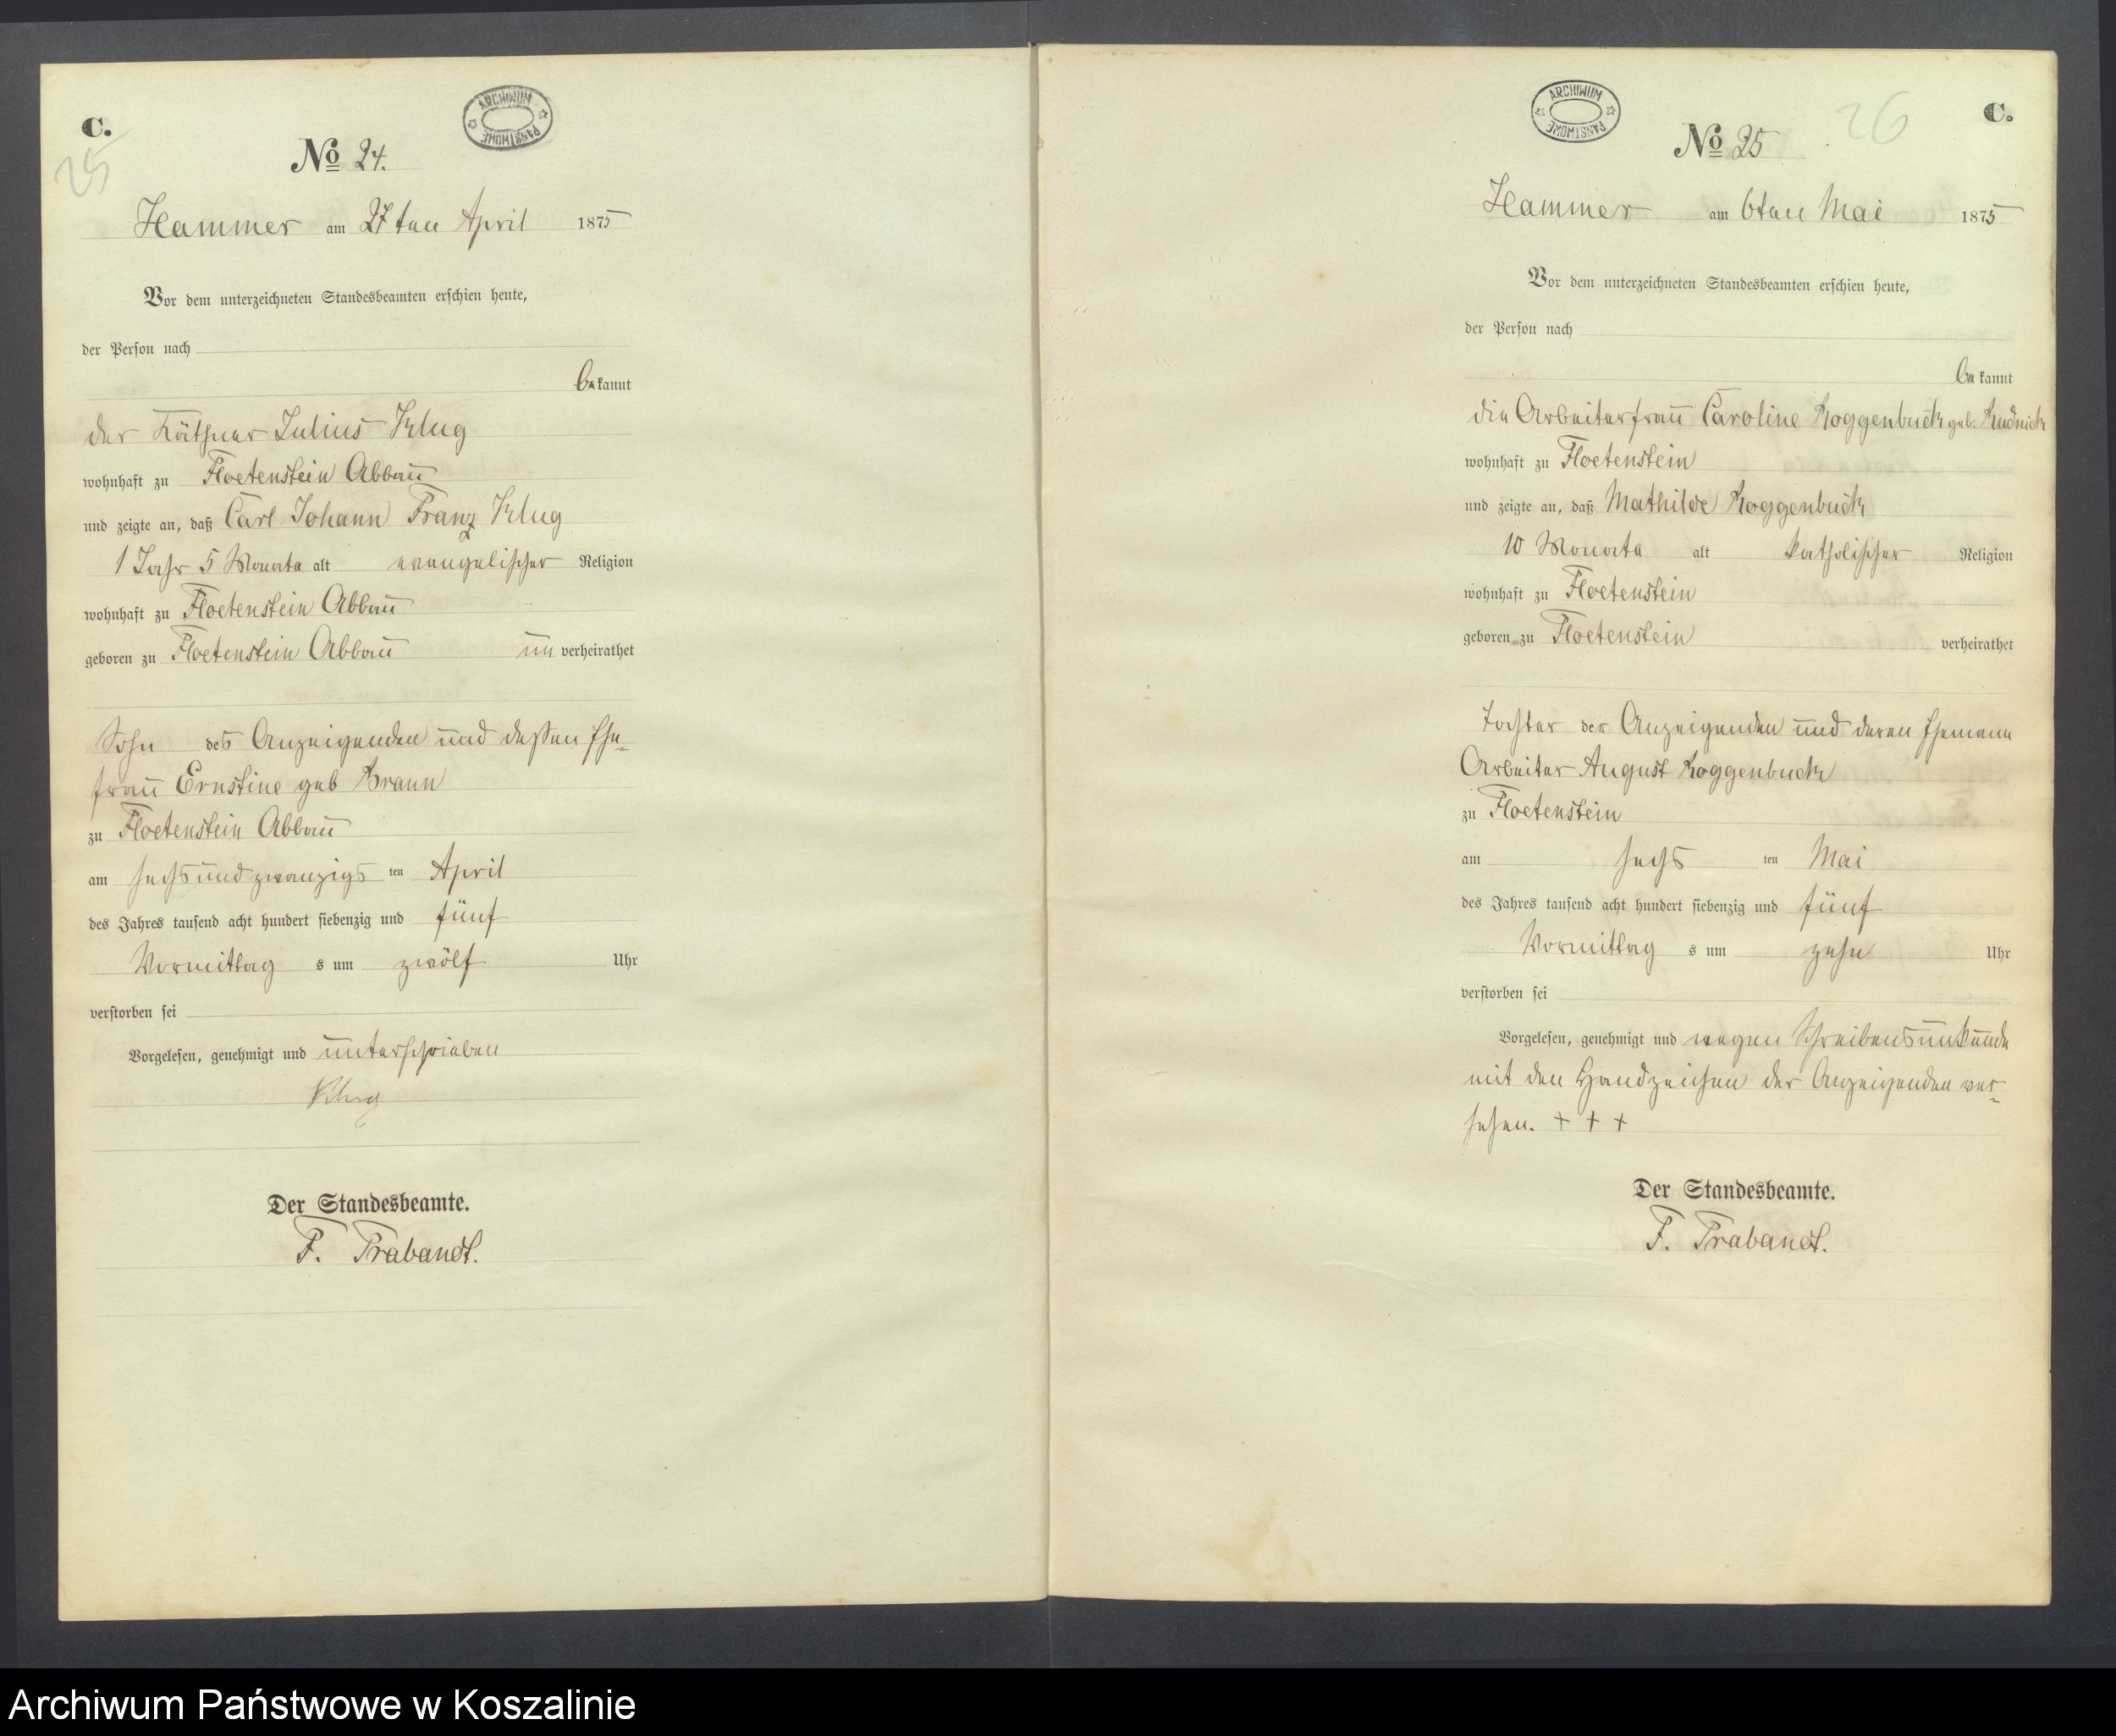 C.
25
ARCHIWUM PAŃSTWOWE
No 24.
Hammer am 27ten April 1875
Vor dem unterzeichneten Standesbeamten erschien heute,
der Person nach
bekannt
der Käthner Julius Klug
wohnhaft zu Floetenstein Abbau
und zeigte an, daß Carl Johann Franz Klug
1 Jahr 5 Monate alt evangelischer Religion
wohnhaft zu Floetenstein Abbau
geboren zu Floetenstein Abbau unverheirathet
Sohn des Anzeigenden und dessen Ehe-
frau Ernstine geb Braun
zu Floetenstein Abbau
am sechsundzwanzigsten April
des Jahres tausend acht hundert siebenzig und fünf
Vormittags um zwölf Uhr
verstorben sei
Vorgelesen, genehmigt und unterschrieben
Klug
Der Standesbeamte.
F. Trabandt.
ARCHIWUM PAŃSTWOWE
26
C.
No 25
Hammer am 6ten Mai 1875
Vor dem unterzeichneten Standesbeamten erschien heute,
der Person nach
bekannt
die Arbeiterfrau Caroline Roggenbuck geb: Rudnick
wohnhaft zu Floetenstein
und zeigte an, daß Mathilde Roggenbuck
10 Monate alt katholischer Religion
wohnhaft zu Floetenstein
geboren zu Floetenstein verheirathet
Tochter der Anzeigenden und deren Ehemann
Arbeiter August Roggenbuck
zu Floetenstein
am sechsten Mai
des Jahres tausend acht hundert siebenzig und fünf
Vormittags um zehn Uhr
verstorben sei
Vorgelesen, genehmigt und wegen Schreibensunkunde
mit den Handzeichen der Anzeigenden ver-
sehen. + + +
Der Standesbeamte.
F. Trabandt.
Archiwum Państwowe w Koszalinie